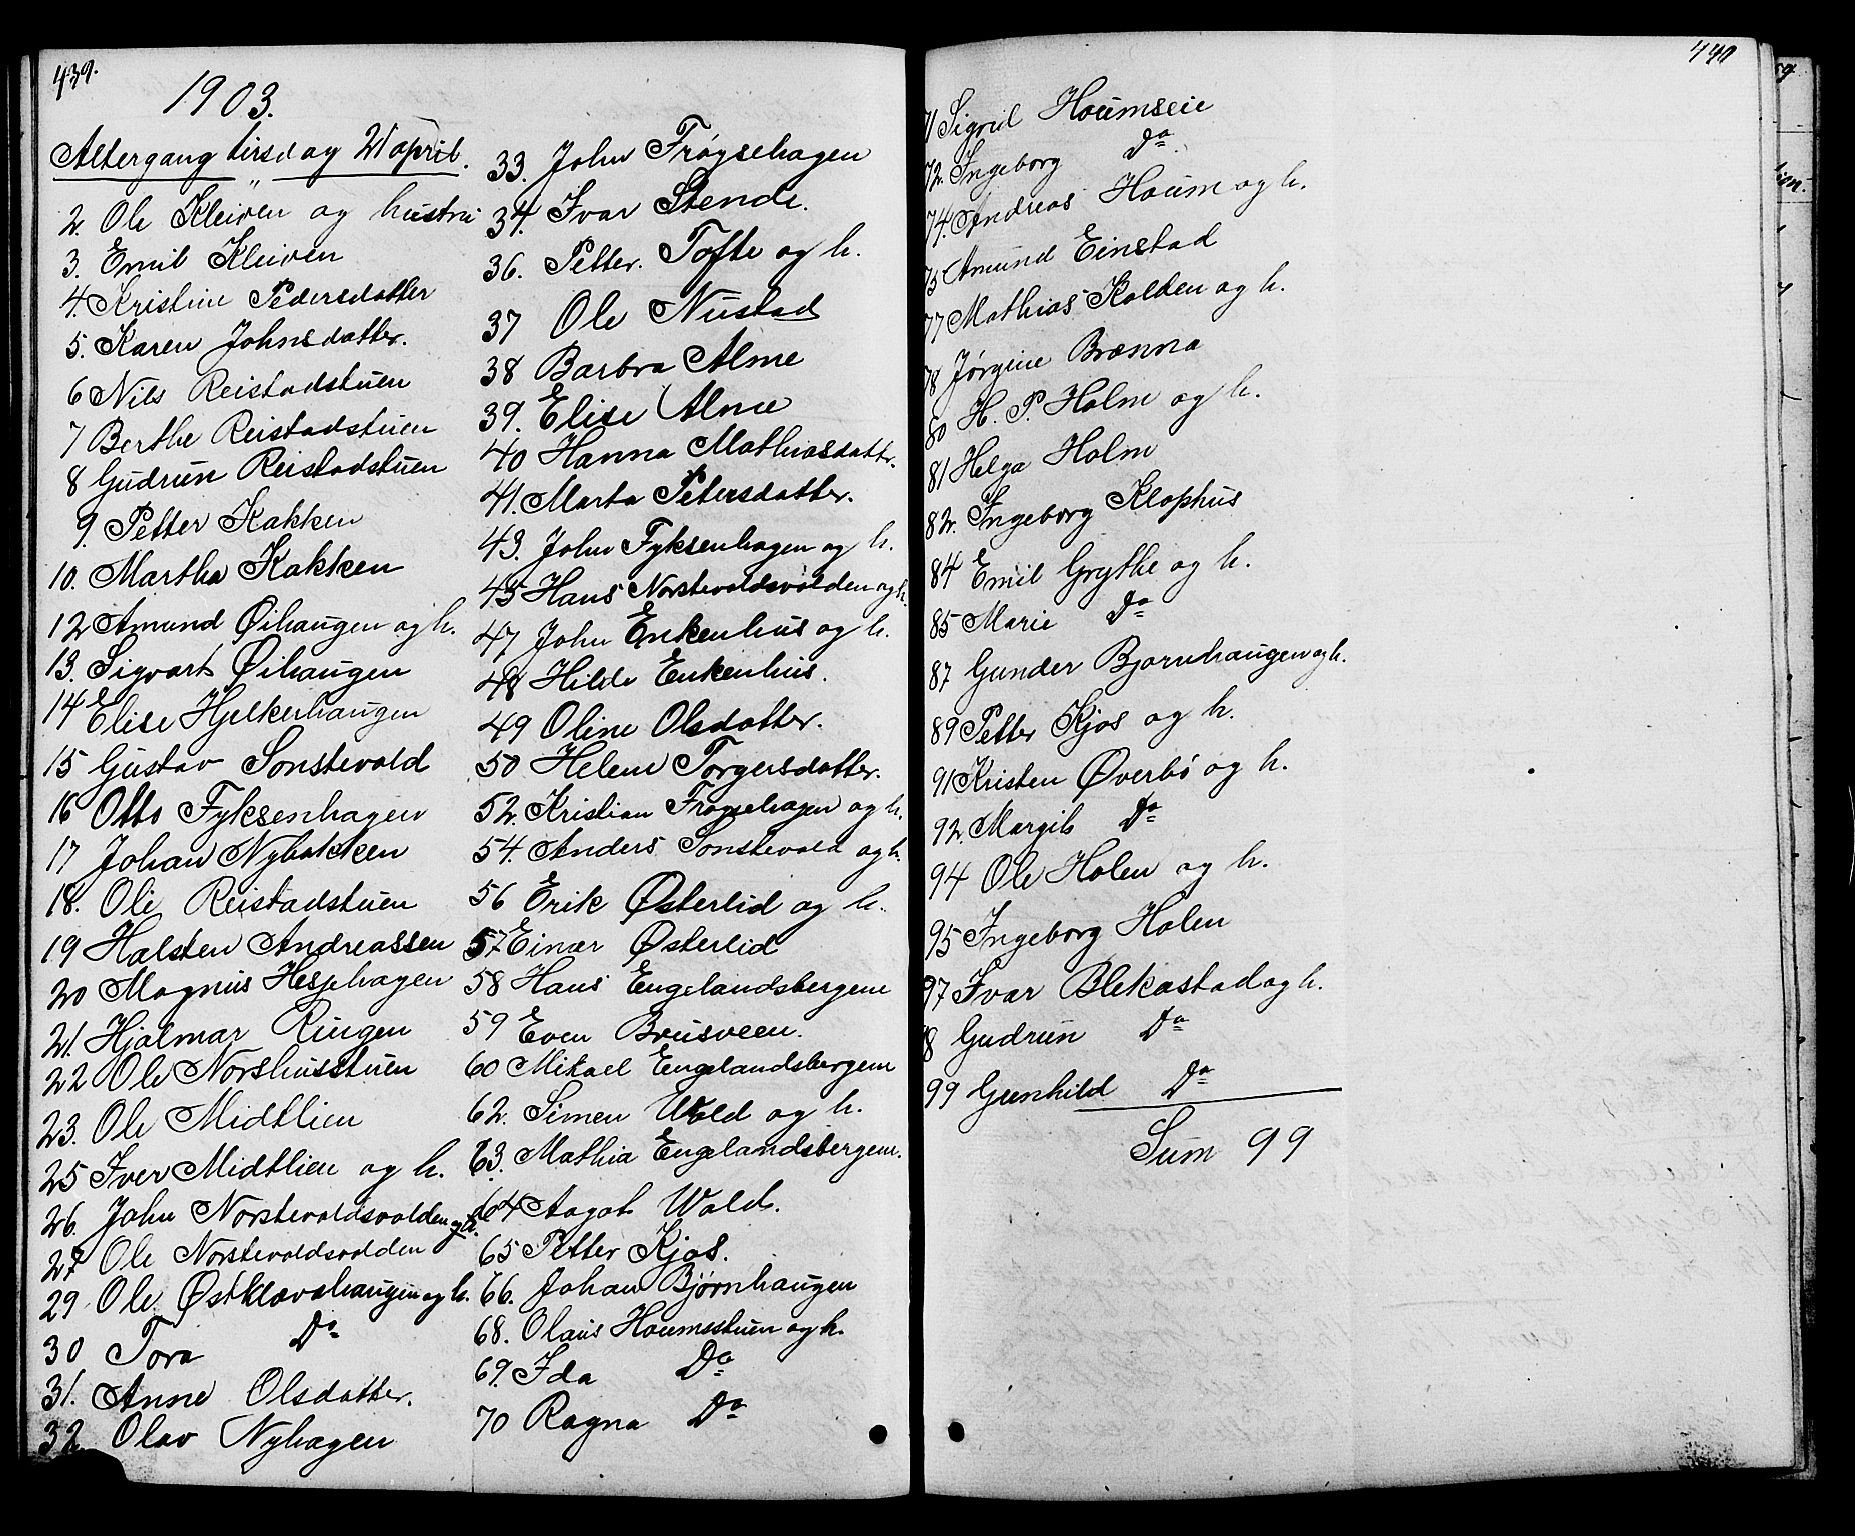 439.
1903.
Altergang tirsdag 21 april.
2. Ole Kleiven og hustru
3. Emil Kleiven
4. Kristine Pedersdatter
5. Karen Johnsdatter.
6 Nils Reistadstuen
7 Berthe Reistadstuen
8 Gudrun Reistadstuen
9. Petter Kakken
10. Martha Kakken
12 Amund Øihaugen og h.
13. Sigvart Øihaugen
14 Elise Hjelkerhaugen
15 Gustav Sonstevold
16 Otto Fyksenhagen
17 Johan Nybakken
18. Ole Reistadstuen
19 Halsten Andreassen
20 Magnus Hesjehagen
21. Hjalmar Ringen
22 Ole Norshusstuen
23. Ole Midtlien
25 Iver Midtlien og h.
26. John Norstevoldsvolden og h.
27 Ole Norstevoldsvolden
29. Ole Østklævahaugen og h.
30 Tora Do
31. Anne Olsdatter.
32. Olav Nyhagen
33. John Frøysehagen
34. Ivar Stende.
36. Petter Tofte og h.
37 Ole Nustad
38 Barbra Alme
39. Elise Alme
40 Hanna Mathiasdattr.
41. Marta Petersdatter.
43. John Fyksenhagen og h.
45 Hans Norstevoldsvolden og h.
47 John Enkenhus og h.
48 Hilde Enkenhus.
49 Oline Olsdatter.
50 Helene Torgersdatter.
52. Kristian Frøysehagen og h.
54. Anders Sonstevold og h.
56 Erik Østerlid og h.
57 Einar Østerlid
58 Hans Engelandsbergene
59 Even Brusveen.
60 Mikael Engelandsbergene
62. Simen Wold og h.
63. Mathia Engelandsbergene.
64 Aagot Wold.
65 Petter Kjos.
66. Johan Bjørnhaugen
68. Olaus Houmsstuen og h.
69. Ida Do
70 Ragna Do
440
71 Sigrid Houmseie
72. Ingeborg Do
74. Andreas Houm og h.
75 Amund Einstad
77 Mathias Kolden og h.
78 Jørgine Brænna
80 H. P. Holm og h.
81 Helga Holm
82. Ingeborg Klophus
84 Emil Grythe og h.
85 Marie Do
87 Gunder Bjørnhaugen og h.
89 Petter Kjos og h.
91 Kristen Øverbø og h.
92. Margit Do
94 Ole Holen og h.
95 Ingeborg Holen
97 Ivar Blekastad og h.
8 Gudrun Do
99 Gunhild Do
Sum 99